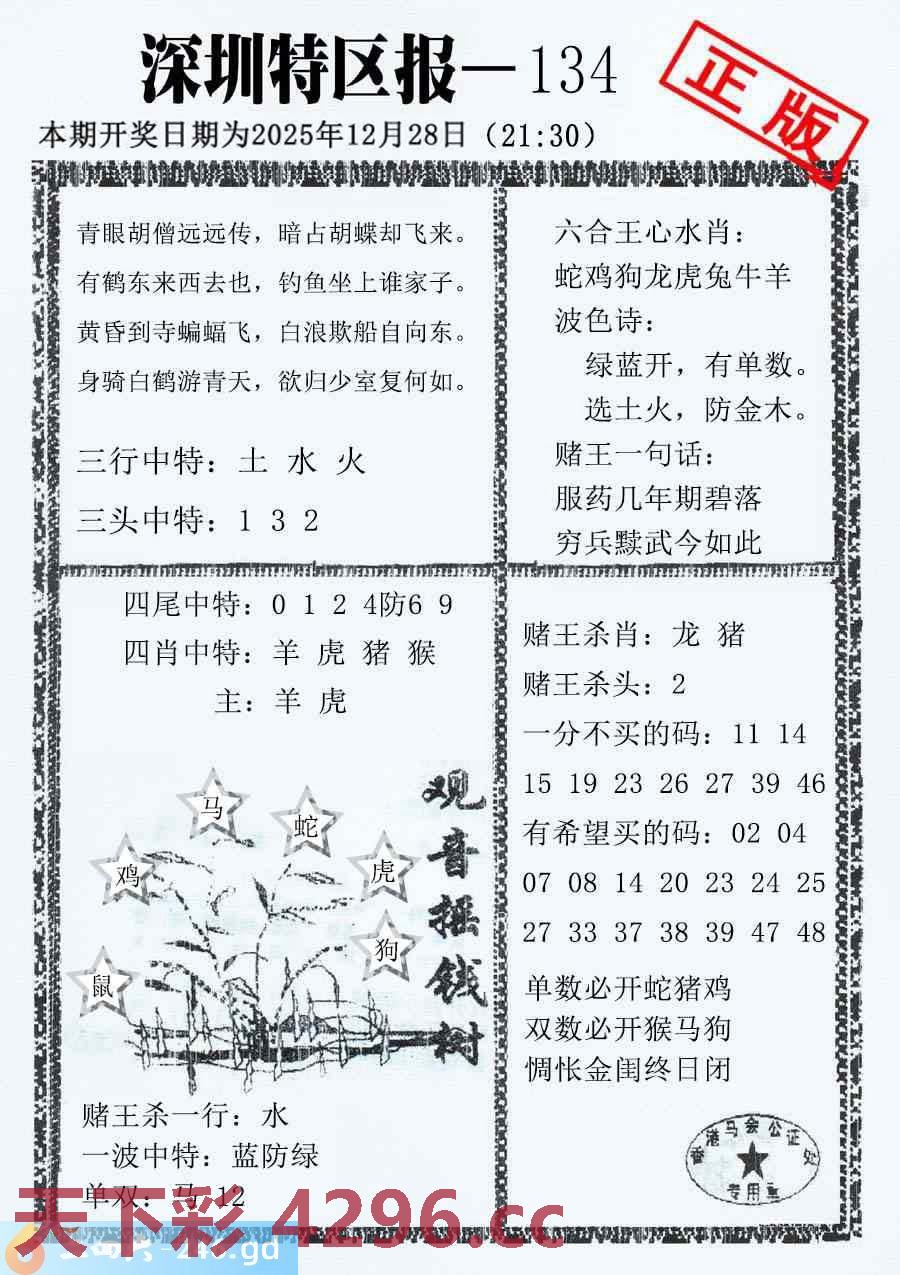 深圳特区报—134
正版
本期开奖日期为2025年12月28日（21:30）
青眼胡僧远远传，暗占胡蝶却飞来。
有鹤东来西去也，钓鱼坐上谁家子。
黄昏到寺蝙蝠飞，白浪欺船自向东。
身骑白鹤游青天，欲归少室复何如。
三行中特：土 水 火
三头中特：1 3 2
六合王心水肖：
蛇鸡狗龙虎兔牛羊
波色诗：
绿蓝开，有单数。
选土火，防金木。
赌王一句话：
服药几年期碧落
穷兵黩武今如此
四尾中特：0 1 2 4防6 9
四肖中特：羊 虎 猪 猴
主：羊 虎
马
蛇
鸡
虎
狗
鼠
观音摇钱树
赌王杀一行：水
一波中特：蓝防绿
单双：马 12
赌王杀肖：龙 猪
赌王杀头：2
一分不买的码：11 14
15 19 23 26 27 39 46
有希望买的码：02 04
07 08 14 20 23 24 25
27 33 37 38 39 47 48
单数必开蛇猪鸡
双数必开猴马狗
惆怅金闺终日闭
香港马会公证处
专用章
天下彩 4296.cc
246.gd